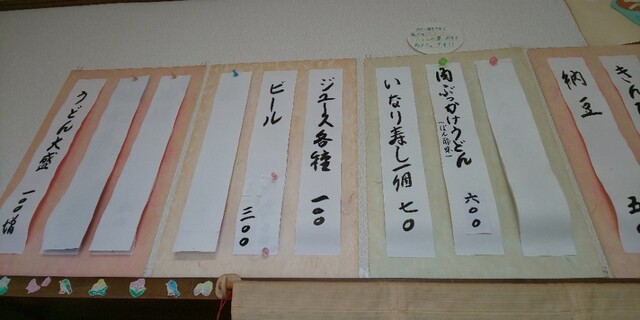 きん
納豆 五
肉ぶっかけうどん 六〇〇
(ぽん酢味)
いなり寿し一個 七〇
ジュース各種 一〇〇
ビール 三〇〇
うどん大盛 一〇〇増